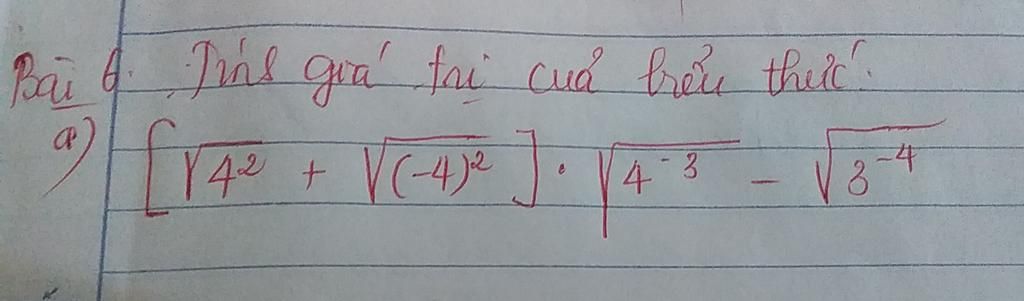 Bài 6. Tính giá trị của biểu thức:
a) [√4² + √(-4)²] . √4⁻³ - √3⁻⁴